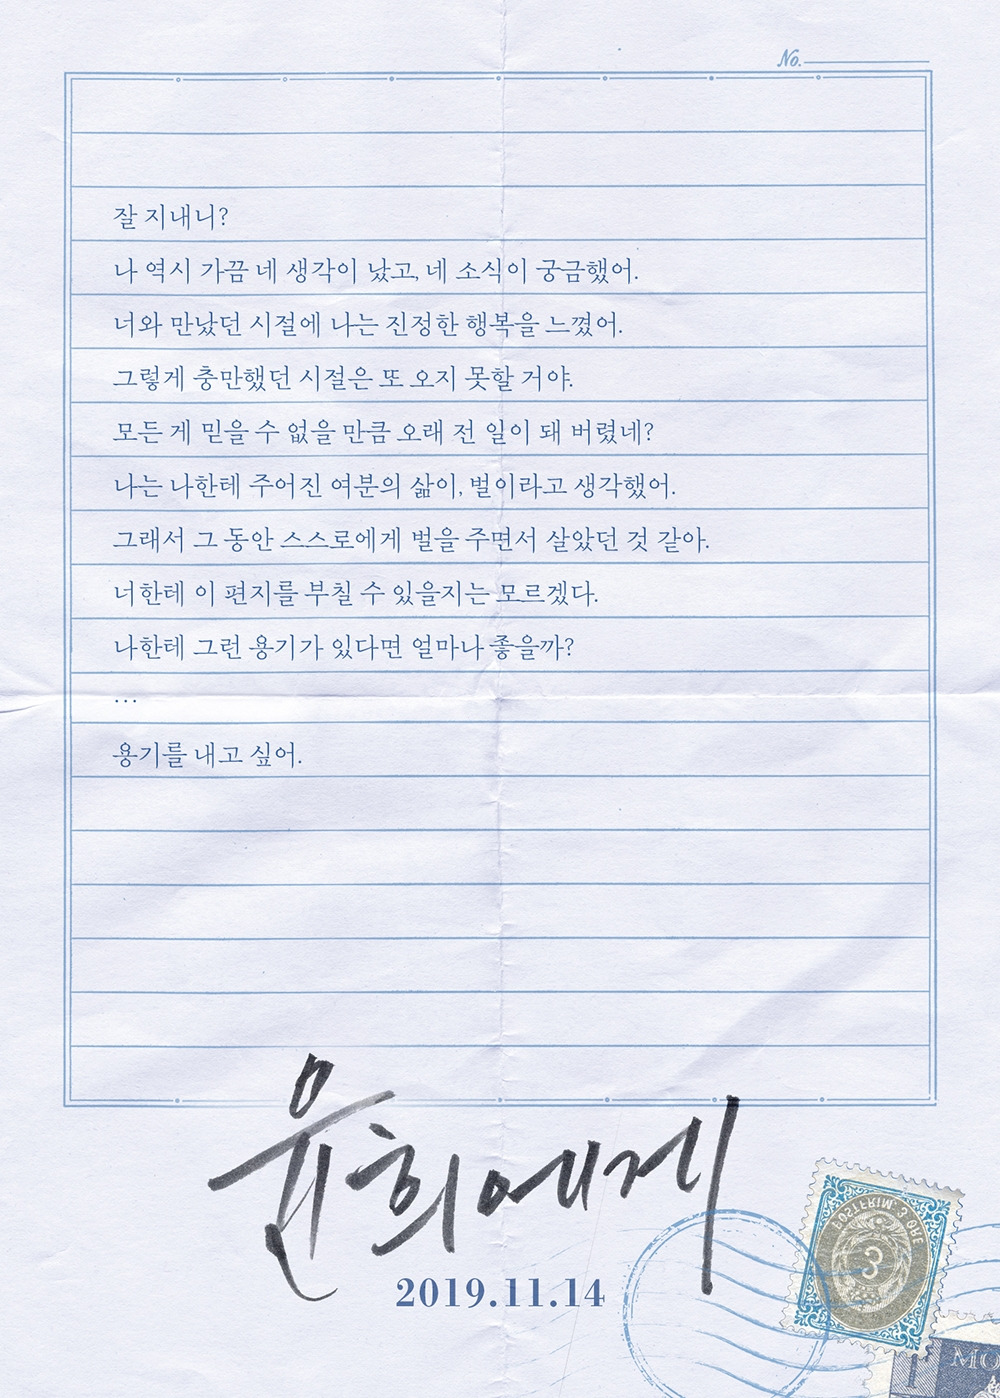 No.
잘 지내니?
나 역시 가끔 네 생각이 났고, 네 소식이 궁금했어.
너와 만났던 시절에 나는 진정한 행복을 느꼈어.
그렇게 충만했던 시절은 또 오지 못할 거야.
모든 게 믿을 수 없을 만큼 오래 전 일이 돼 버렸네?
나는 나한테 주어진 여분의 삶이, 벌이라고 생각했어.
그래서 그 동안 스스로에게 벌을 주면서 살았던 것 같아.
너한테 이 편지를 부칠 수 있을지는 모르겠다.
나한테 그런 용기가 있다면 얼마나 좋을까?
...
용기를 내고 싶어.
윤희에게
2019.11.14
POSTFRIM. 3 ØRE
3
MO